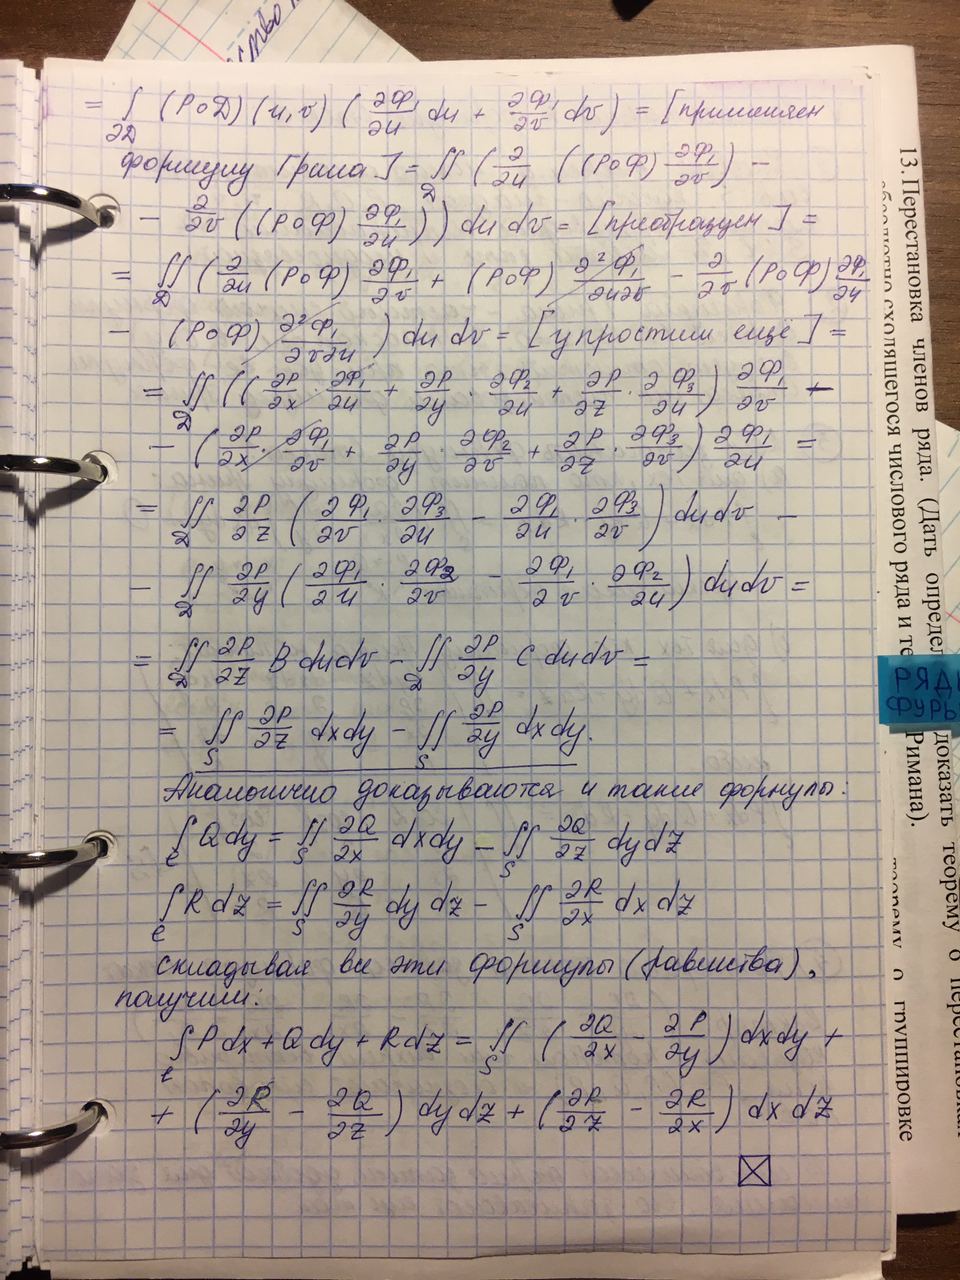 = ∫_{∂D} (P∘D)(u,v) (∂Ф₁/∂u du + ∂Ф₁/∂v dv) = [применяем
формулу Грина] = ∬_D (∂/∂u ((P∘Ф) ∂Ф₁/∂v) −
− ∂/∂v ((P∘Ф) ∂Ф₁/∂u)) du dv = [преобразуем] =
= ∬_D (∂/∂u (P∘Ф) ∂Ф₁/∂v + (P∘Ф) ∂²Ф₁/∂u∂v − ∂/∂v (P∘Ф) ∂Ф₁/∂u
− (P∘Ф) ∂²Ф₁/∂v∂u) du dv = [упростим ещё] =
= ∬_D ((∂P/∂x · ∂Ф₁/∂u + ∂P/∂y · ∂Ф₂/∂u + ∂P/∂z · ∂Ф₃/∂u) ∂Ф₁/∂v −
− (∂P/∂x · ∂Ф₁/∂v + ∂P/∂y · ∂Ф₂/∂v + ∂P/∂z · ∂Ф₃/∂v) ∂Ф₁/∂u =
= ∬_D ∂P/∂z (∂Ф₁/∂v · ∂Ф₃/∂u − ∂Ф₁/∂u · ∂Ф₃/∂v) du dv −
− ∬_D ∂P/∂y (∂Ф₁/∂u · ∂Ф₂/∂v − ∂Ф₁/∂v · ∂Ф₂/∂u) du dv =
= ∬_D ∂P/∂z B du dv − ∬_D ∂P/∂y C du dv =
= ∬_S ∂P/∂z dx dy − ∬_S ∂P/∂y dx dy.
Аналогично доказываются и такие формулы:
∫_ℓ Q dy = ∬_S ∂Q/∂x dx dy − ∬_S ∂Q/∂z dy dz
∫_ℓ R dz = ∬_S ∂R/∂y dy dz − ∬_S ∂R/∂x dx dz
Складывая все эти формулы (равенства),
получим:
∫_ℓ P dx + Q dy + R dz = ∬_S (∂Q/∂x − ∂P/∂y) dx dy +
+ (∂R/∂y − ∂Q/∂z) dy dz + (∂P/∂z − ∂R/∂x) dx dz
13. Перестановка членов ряда. (Дать определ
доказать теорему о перестановк
сходящегося числового ряда и те
Римана).
теорему о группировке
РЯДЫ
ФУРЬ